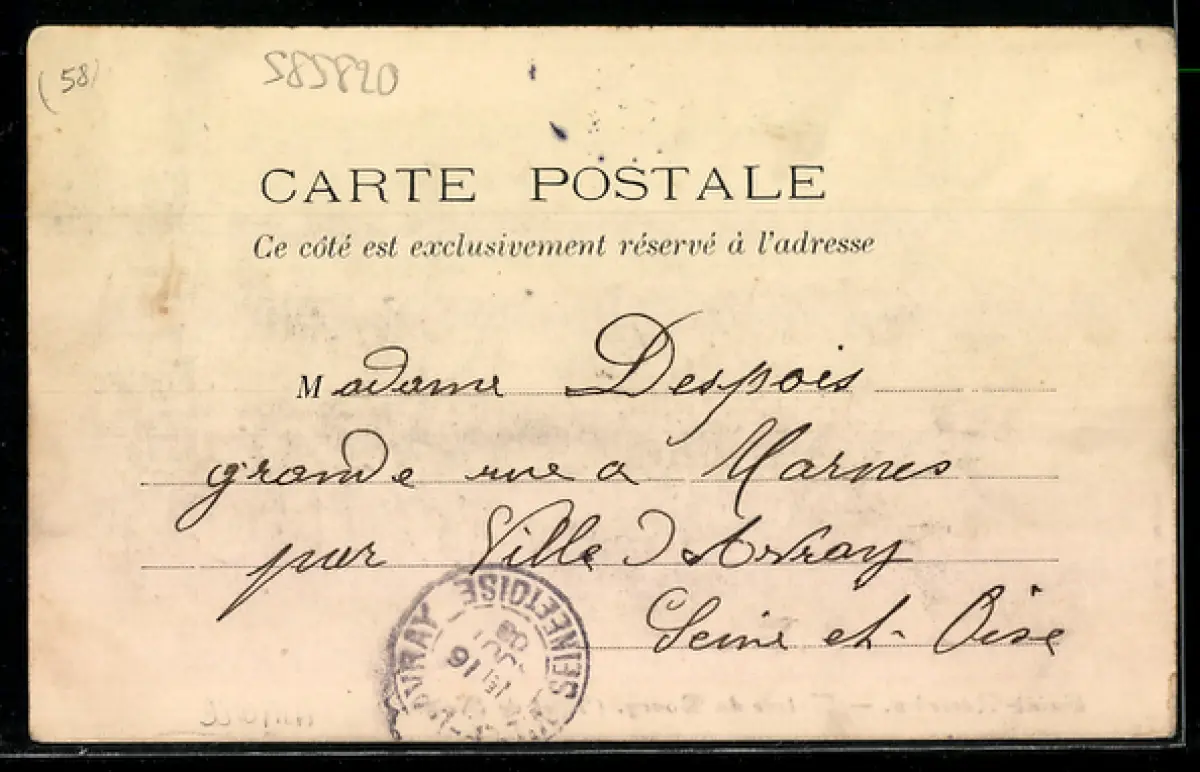 (58)
585820
CARTE POSTALE
Ce côté est exclusivement réservé à l'adresse
Madame Despois
grande rue a Marnes
par Ville d'Avray
Seine et Oise
AVRAY SEINE ET OISE
16